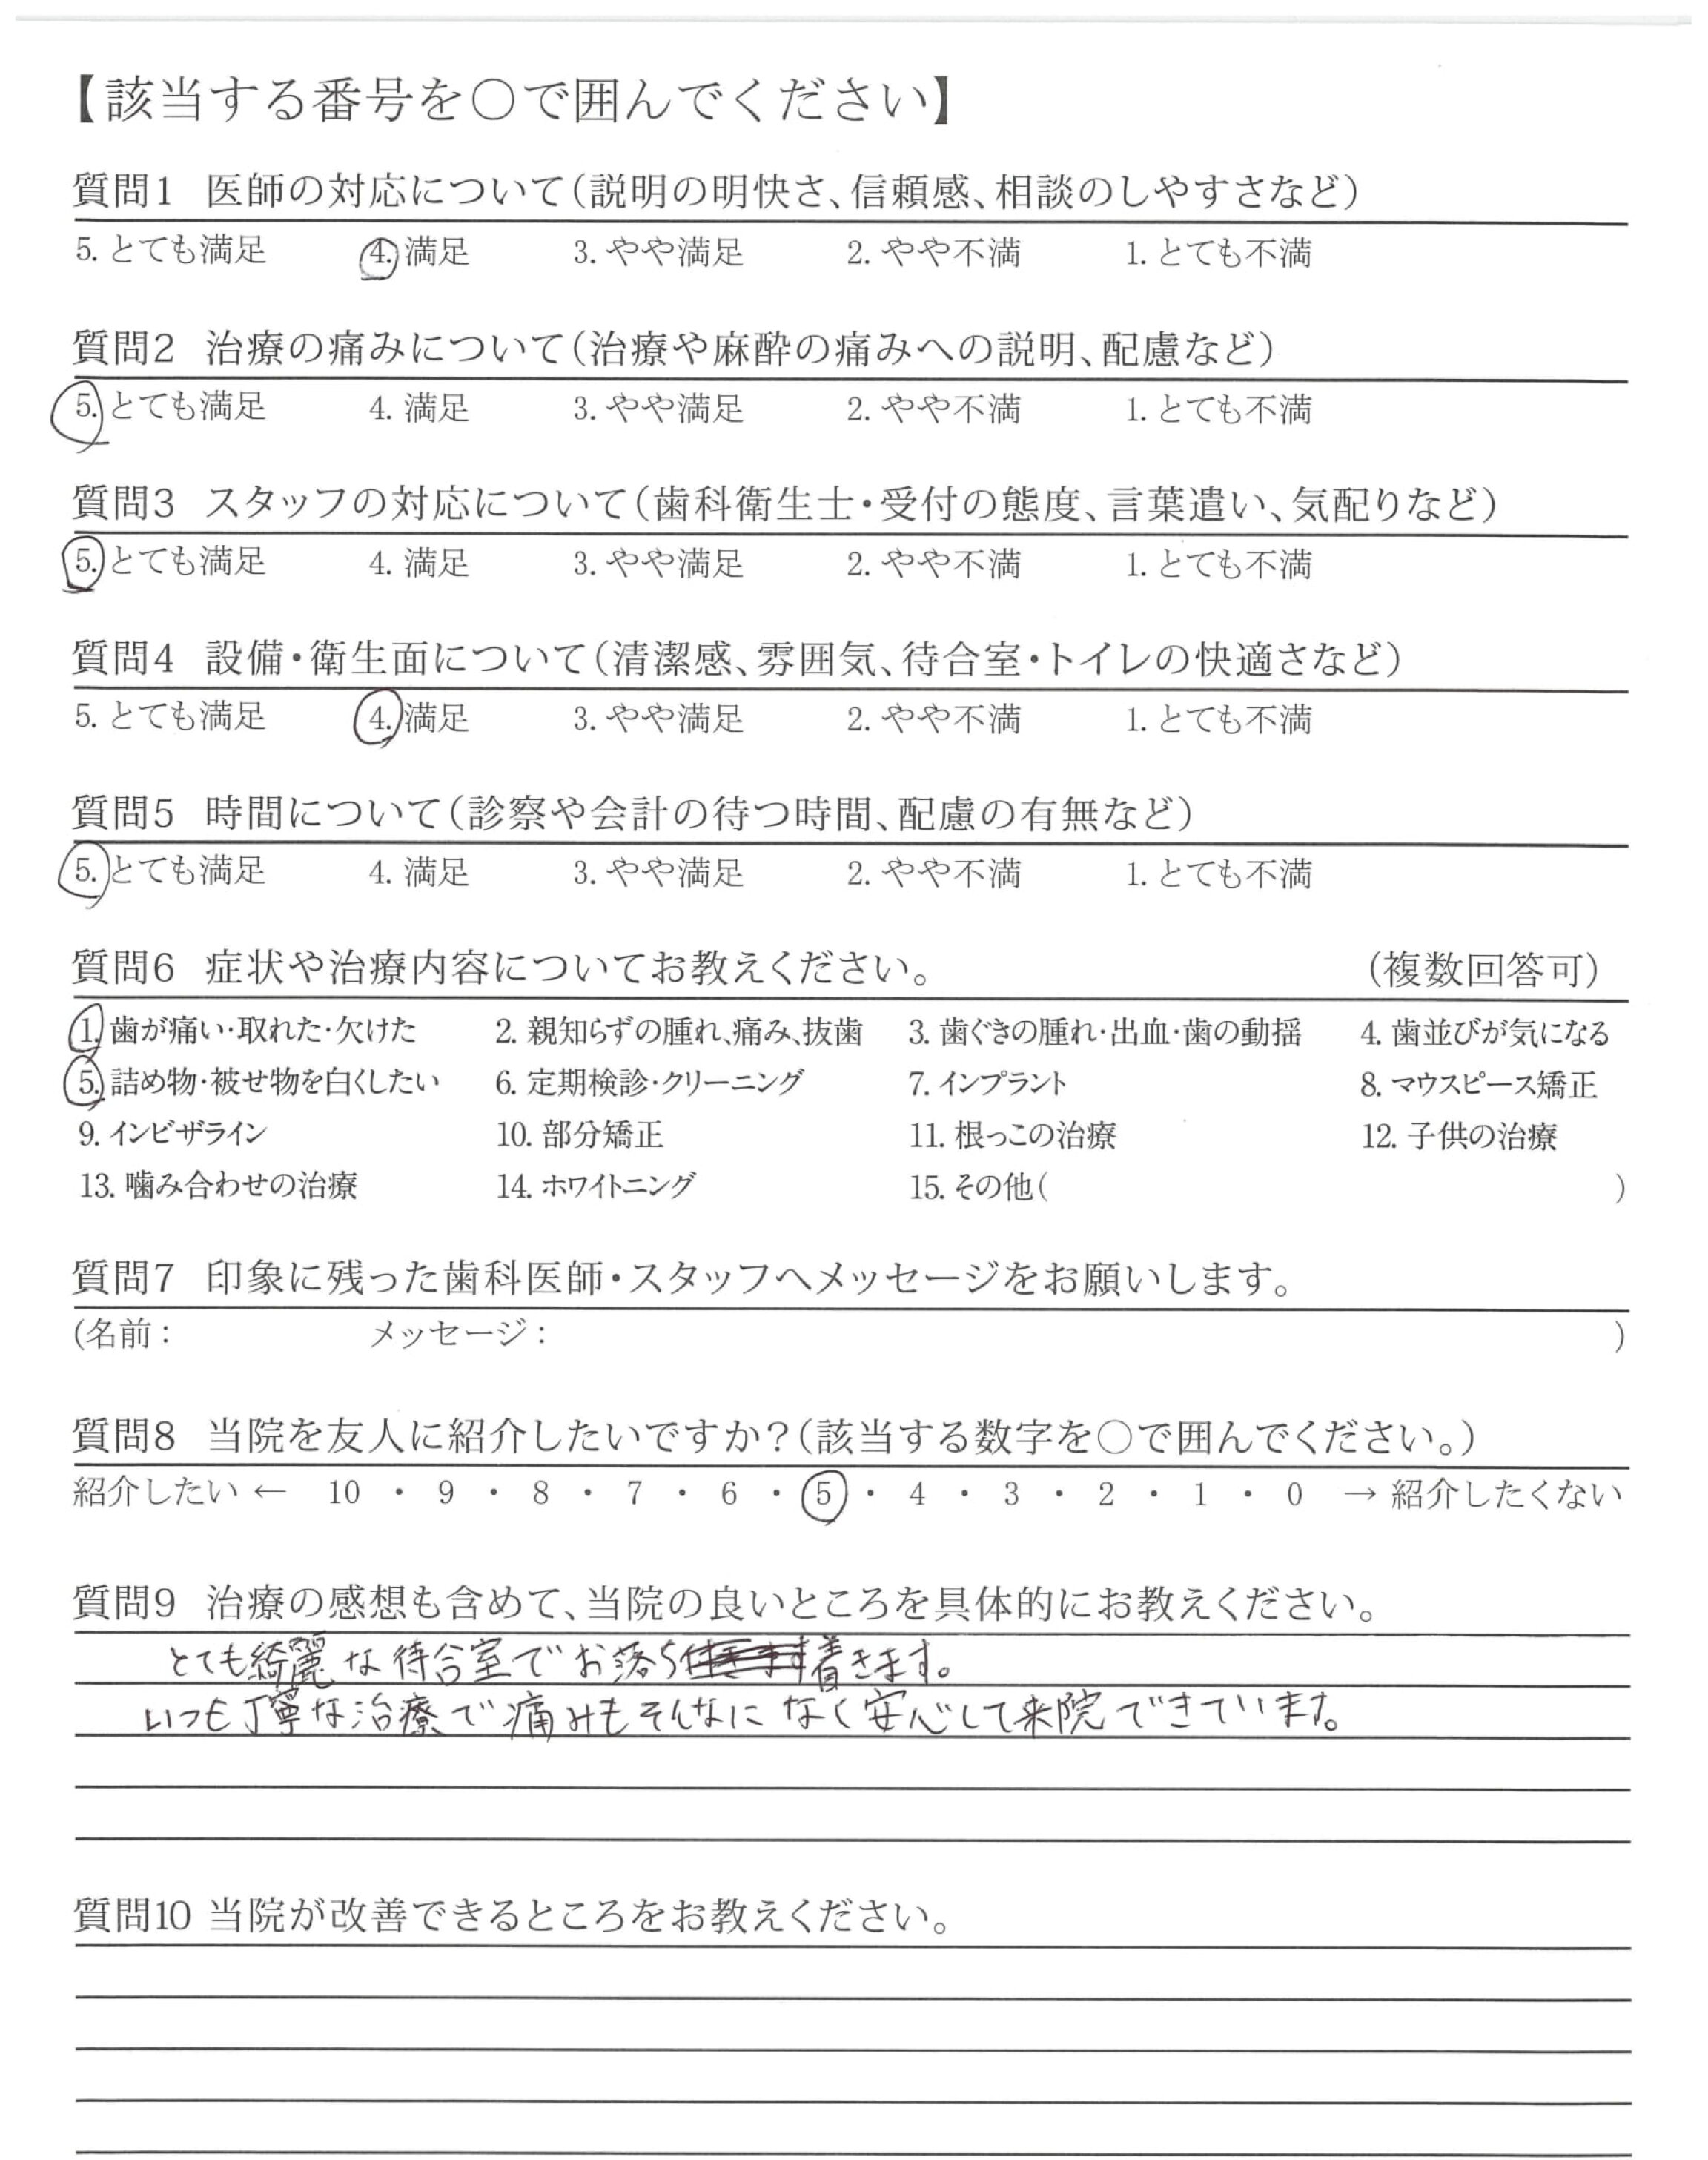 【該当する番号を〇で囲んでください】
質問1 医師の対応について(説明の明快さ、信頼感、相談のしやすさなど)
5. とても満足 4. 満足 3. やや満足 2. やや不満 1. とても不満
質問2 治療の痛みについて(治療や麻酔の痛みへの説明、配慮など)
5. とても満足 4. 満足 3. やや満足 2. やや不満 1. とても不満
質問3 スタッフの対応について(歯科衛生士・受付の態度、言葉遣い、気配りなど)
5. とても満足 4. 満足 3. やや満足 2. やや不満 1. とても不満
質問4 設備・衛生面について(清潔感、雰囲気、待合室・トイレの快適さなど)
5. とても満足 4. 満足 3. やや満足 2. やや不満 1. とても不満
質問5 時間について(診察や会計の待つ時間、配慮の有無など)
5. とても満足 4. 満足 3. やや満足 2. やや不満 1. とても不満
質問6 症状や治療内容についてお教えください。 (複数回答可)
1. 歯が痛い・取れた・欠けた 2. 親知らずの腫れ、痛み、抜歯 3. 歯ぐきの腫れ・出血・歯の動揺 4. 歯並びが気になる
5. 詰め物・被せ物を白くしたい 6. 定期検診・クリーニング 7. インプラント 8. マウスピース矯正
9. インビザライン 10. 部分矯正 11. 根っこの治療 12. 子供の治療
13. 噛み合わせの治療 14. ホワイトニング 15. その他( )
質問7 印象に残った歯科医師・スタッフへメッセージをお願いします。
(名前: メッセージ: )
質問8 当院を友人に紹介したいですか?(該当する数字を〇で囲んでください。)
紹介したい ← 10 ・ 9 ・ 8 ・ 7 ・ 6 ・ 5 ・ 4 ・ 3 ・ 2 ・ 1 ・ 0 → 紹介したくない
質問9 治療の感想も含めて、当院の良いところを具体的にお教えください。
とても綺麗な待合室でお落ち着きます。
いつも丁寧な治療で痛みもそんなになく安心して来院できています。
質問10 当院が改善できるところをお教えください。